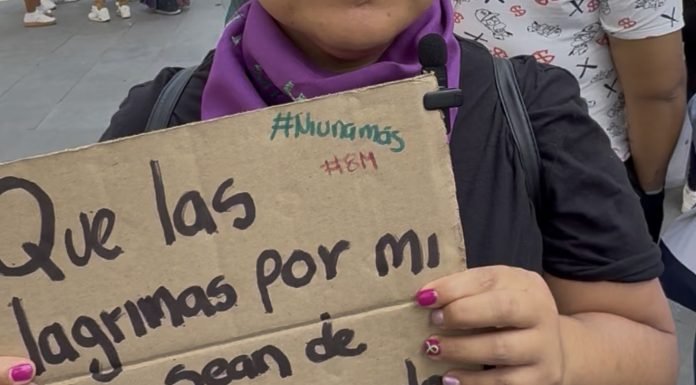 #Niunamás
#8M
Que las
lagrimas por mi
sean de